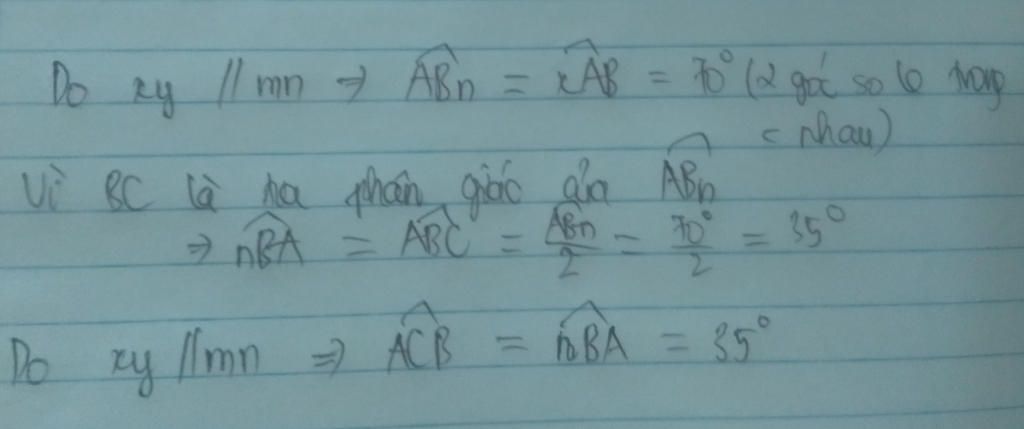 Do xy // mn => ABn = xAB = 70° (2 góc so le trong
= nhau)
Vì BC là tia phân giác của ABn
=> nBA = ABC = ABn/2 = 70°/2 = 35°
Do xy // mn => ACB = nBA = 35°